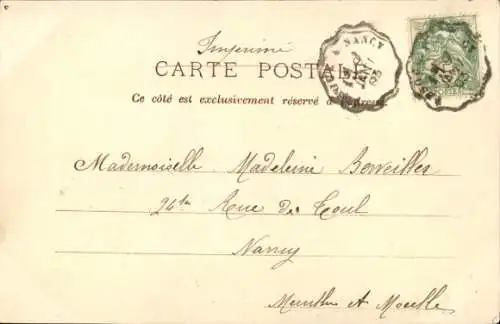 Imprimé
CARTE POSTALE
Ce côté est exclusivement réservé à l'adresse
NANCY
Mademoiselle Madeleine
Rue de Toul
Nancy
Meurthe et Moselle